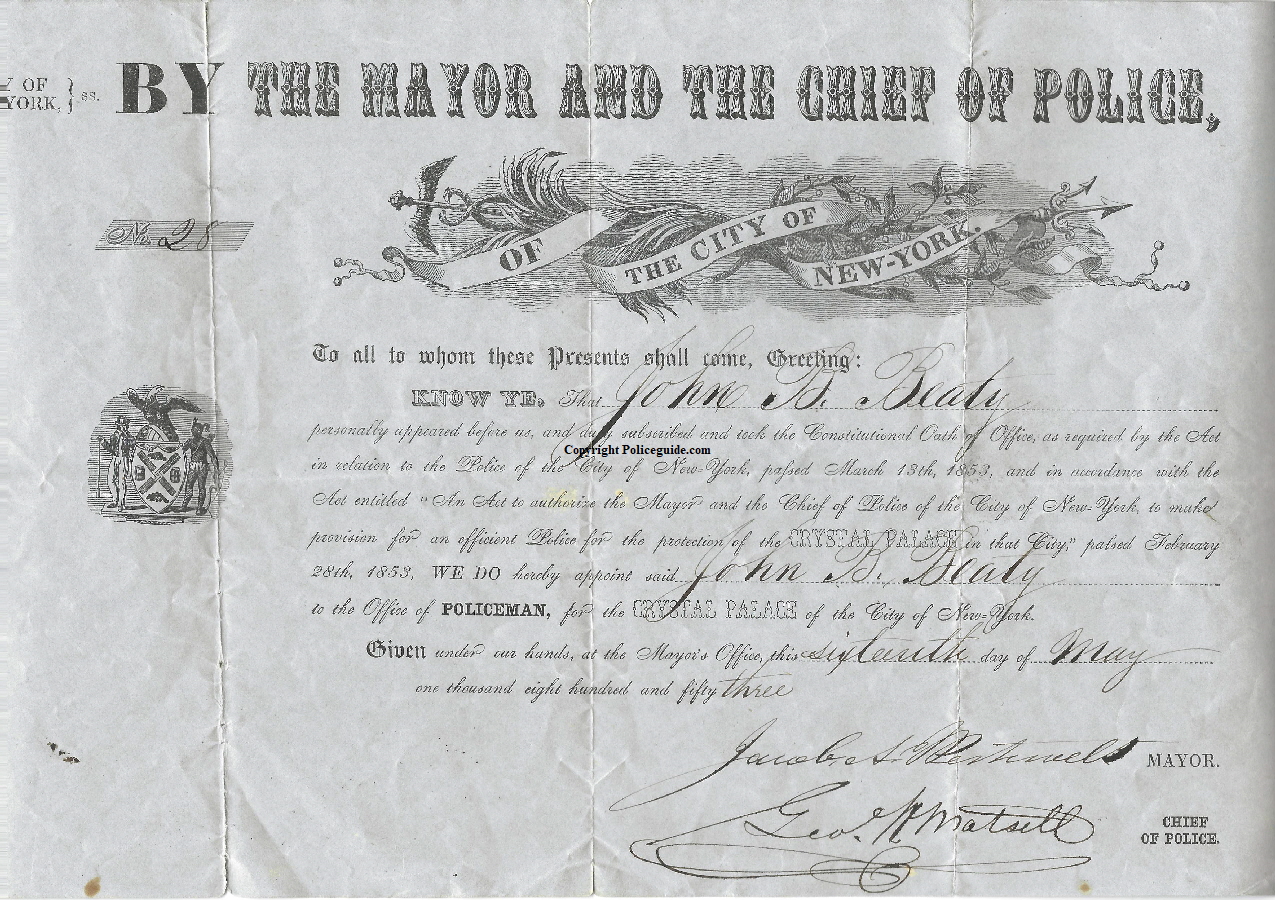 Y OF
YORK, } ss.
BY THE MAYOR AND THE CHIEF OF POLICE,
OF THE CITY OF NEW-YORK.
No. 28
To all to whom these Presents shall come, Greeting:
KNOW YE, That John B. Beaty
personally appeared before us, and duly subscribed and took the Constitutional Oath of Office, as required by the Act
Copyright Policeguide.com
in relation to the Police of the City of New-York, passed March 13th, 1853, and in accordance with the
Act entitled "An Act to authorize the Mayor and the Chief of Police of the City of New-York, to make
provision for an efficient Police for the protection of the CRYSTAL PALACE in that City," passed February
28th, 1853, WE DO hereby appoint said John B. Beaty
to the Office of POLICEMAN, for the CRYSTAL PALACE of the City of New-York.
Given under our hands, at the Mayor's Office, this sixteenth day of May
one thousand eight hundred and fifty three
Jacob A. Westervelt MAYOR.
Geo. W. Matsell CHIEF
OF POLICE.